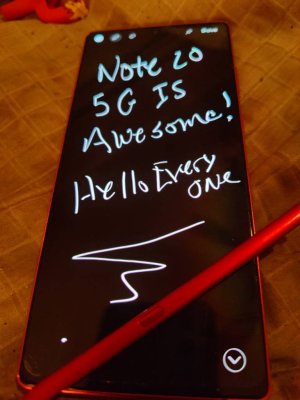 Save
Note 20
5G IS
Awesome!
Hello Every
one